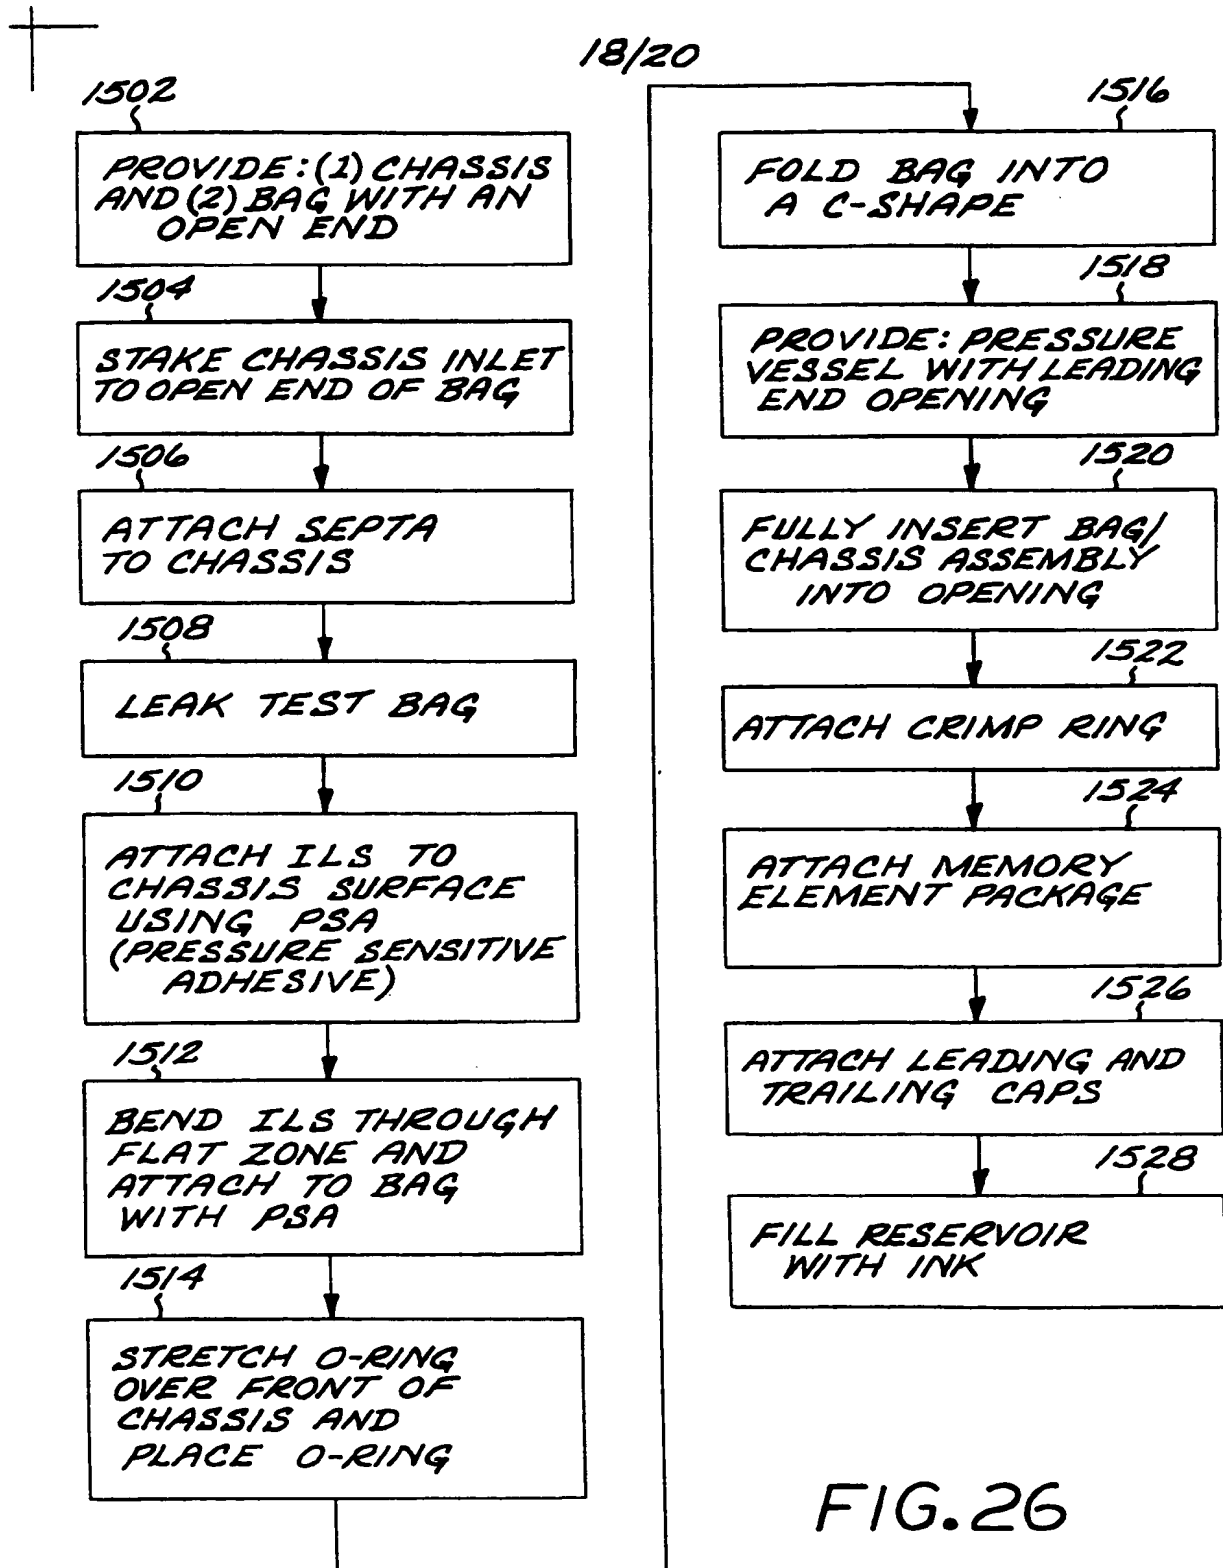 18/20
1502
PROVIDE: (1) CHASSIS
AND (2) BAG WITH AN
OPEN END
1504
STAKE CHASSIS INLET
TO OPEN END OF BAG
1506
ATTACH SEPTA
TO CHASSIS
1508
LEAK TEST BAG
1510
ATTACH ILS TO
CHASSIS SURFACE
USING PSA
(PRESSURE SENSITIVE
ADHESIVE)
1512
BEND ILS THROUGH
FLAT ZONE AND
ATTACH TO BAG
WITH PSA
1514
STRETCH O-RING
OVER FRONT OF
CHASSIS AND
PLACE O-RING
1516
FOLD BAG INTO
A C-SHAPE
1518
PROVIDE: PRESSURE
VESSEL WITH LEADING
END OPENING
1520
FULLY INSERT BAG/
CHASSIS ASSEMBLY
INTO OPENING
1522
ATTACH CRIMP RING
1524
ATTACH MEMORY
ELEMENT PACKAGE
1526
ATTACH LEADING AND
TRAILING CAPS
1528
FILL RESERVOIR
WITH INK
FIG.26